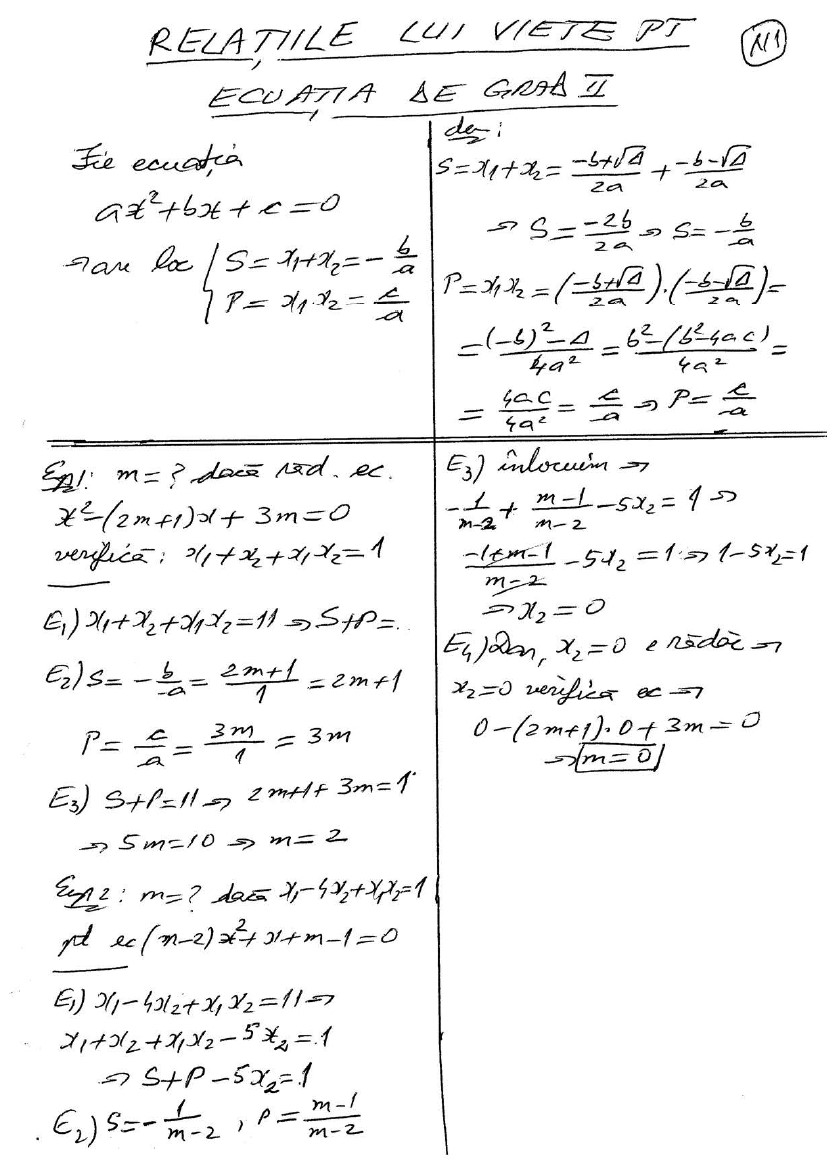 RELAȚIILE LUI VIETE PT
N1
ECUAȚIA DE GRAD II
Fie ecuația
ax²+bx+c=0
⇒ are loc { S=x₁+x₂=-b/a
P=x₁·x₂=c/a
dem:
S=x₁+x₂= (-b+√Δ)/2a + (-b-√Δ)/2a
⇒ S= -2b/2a ⇒ S=-b/a
P=x₁x₂=((-b+√Δ)/2a)·((-b-√Δ)/2a)=
=((-b)²-Δ)/4a² = (b²-(b²-4ac))/4a² =
= 4ac/4a² = c/a ⇒ P= c/a
Exp1: m=? dacă răd. ec.
x²-(2m+1)x+3m=0
verifică: x₁+x₂+x₁x₂=1
E₁) x₁+x₂+x₁x₂=11 ⇒ S+P=..
E₂) S= -b/a = (2m+1)/1 = 2m+1
P= c/a = 3m/1 = 3m
E₃) S+P=11 ⇒ 2m+1+3m=1
⇒ 5m=10 ⇒ m=2
Exp2: m=? dacă x₁-4x₂+x₁x₂=1
pt ec (m-2)x²+x+m-1=0
E₁) x₁-4x₂+x₁x₂=11 ⇒
x₁+x₂+x₁x₂-5x₂=.1
⇒ S+P-5x₂=.1
E₂) S=-1/(m-2), P=(m-1)/(m-2)
E₃) înlocuim ⇒
-1/(m-2) + (m-1)/(m-2) -5x₂=1 ⇒
(-1+m-1)/(m-2) -5x₂=1 ⇒ 1-5x₂=1
⇒ x₂=0
E₄) Dar, x₂=0 e rădăc ⇒
x₂=0 verifică ec ⇒
0-(2m+1)·0+3m=0
⇒ m=0